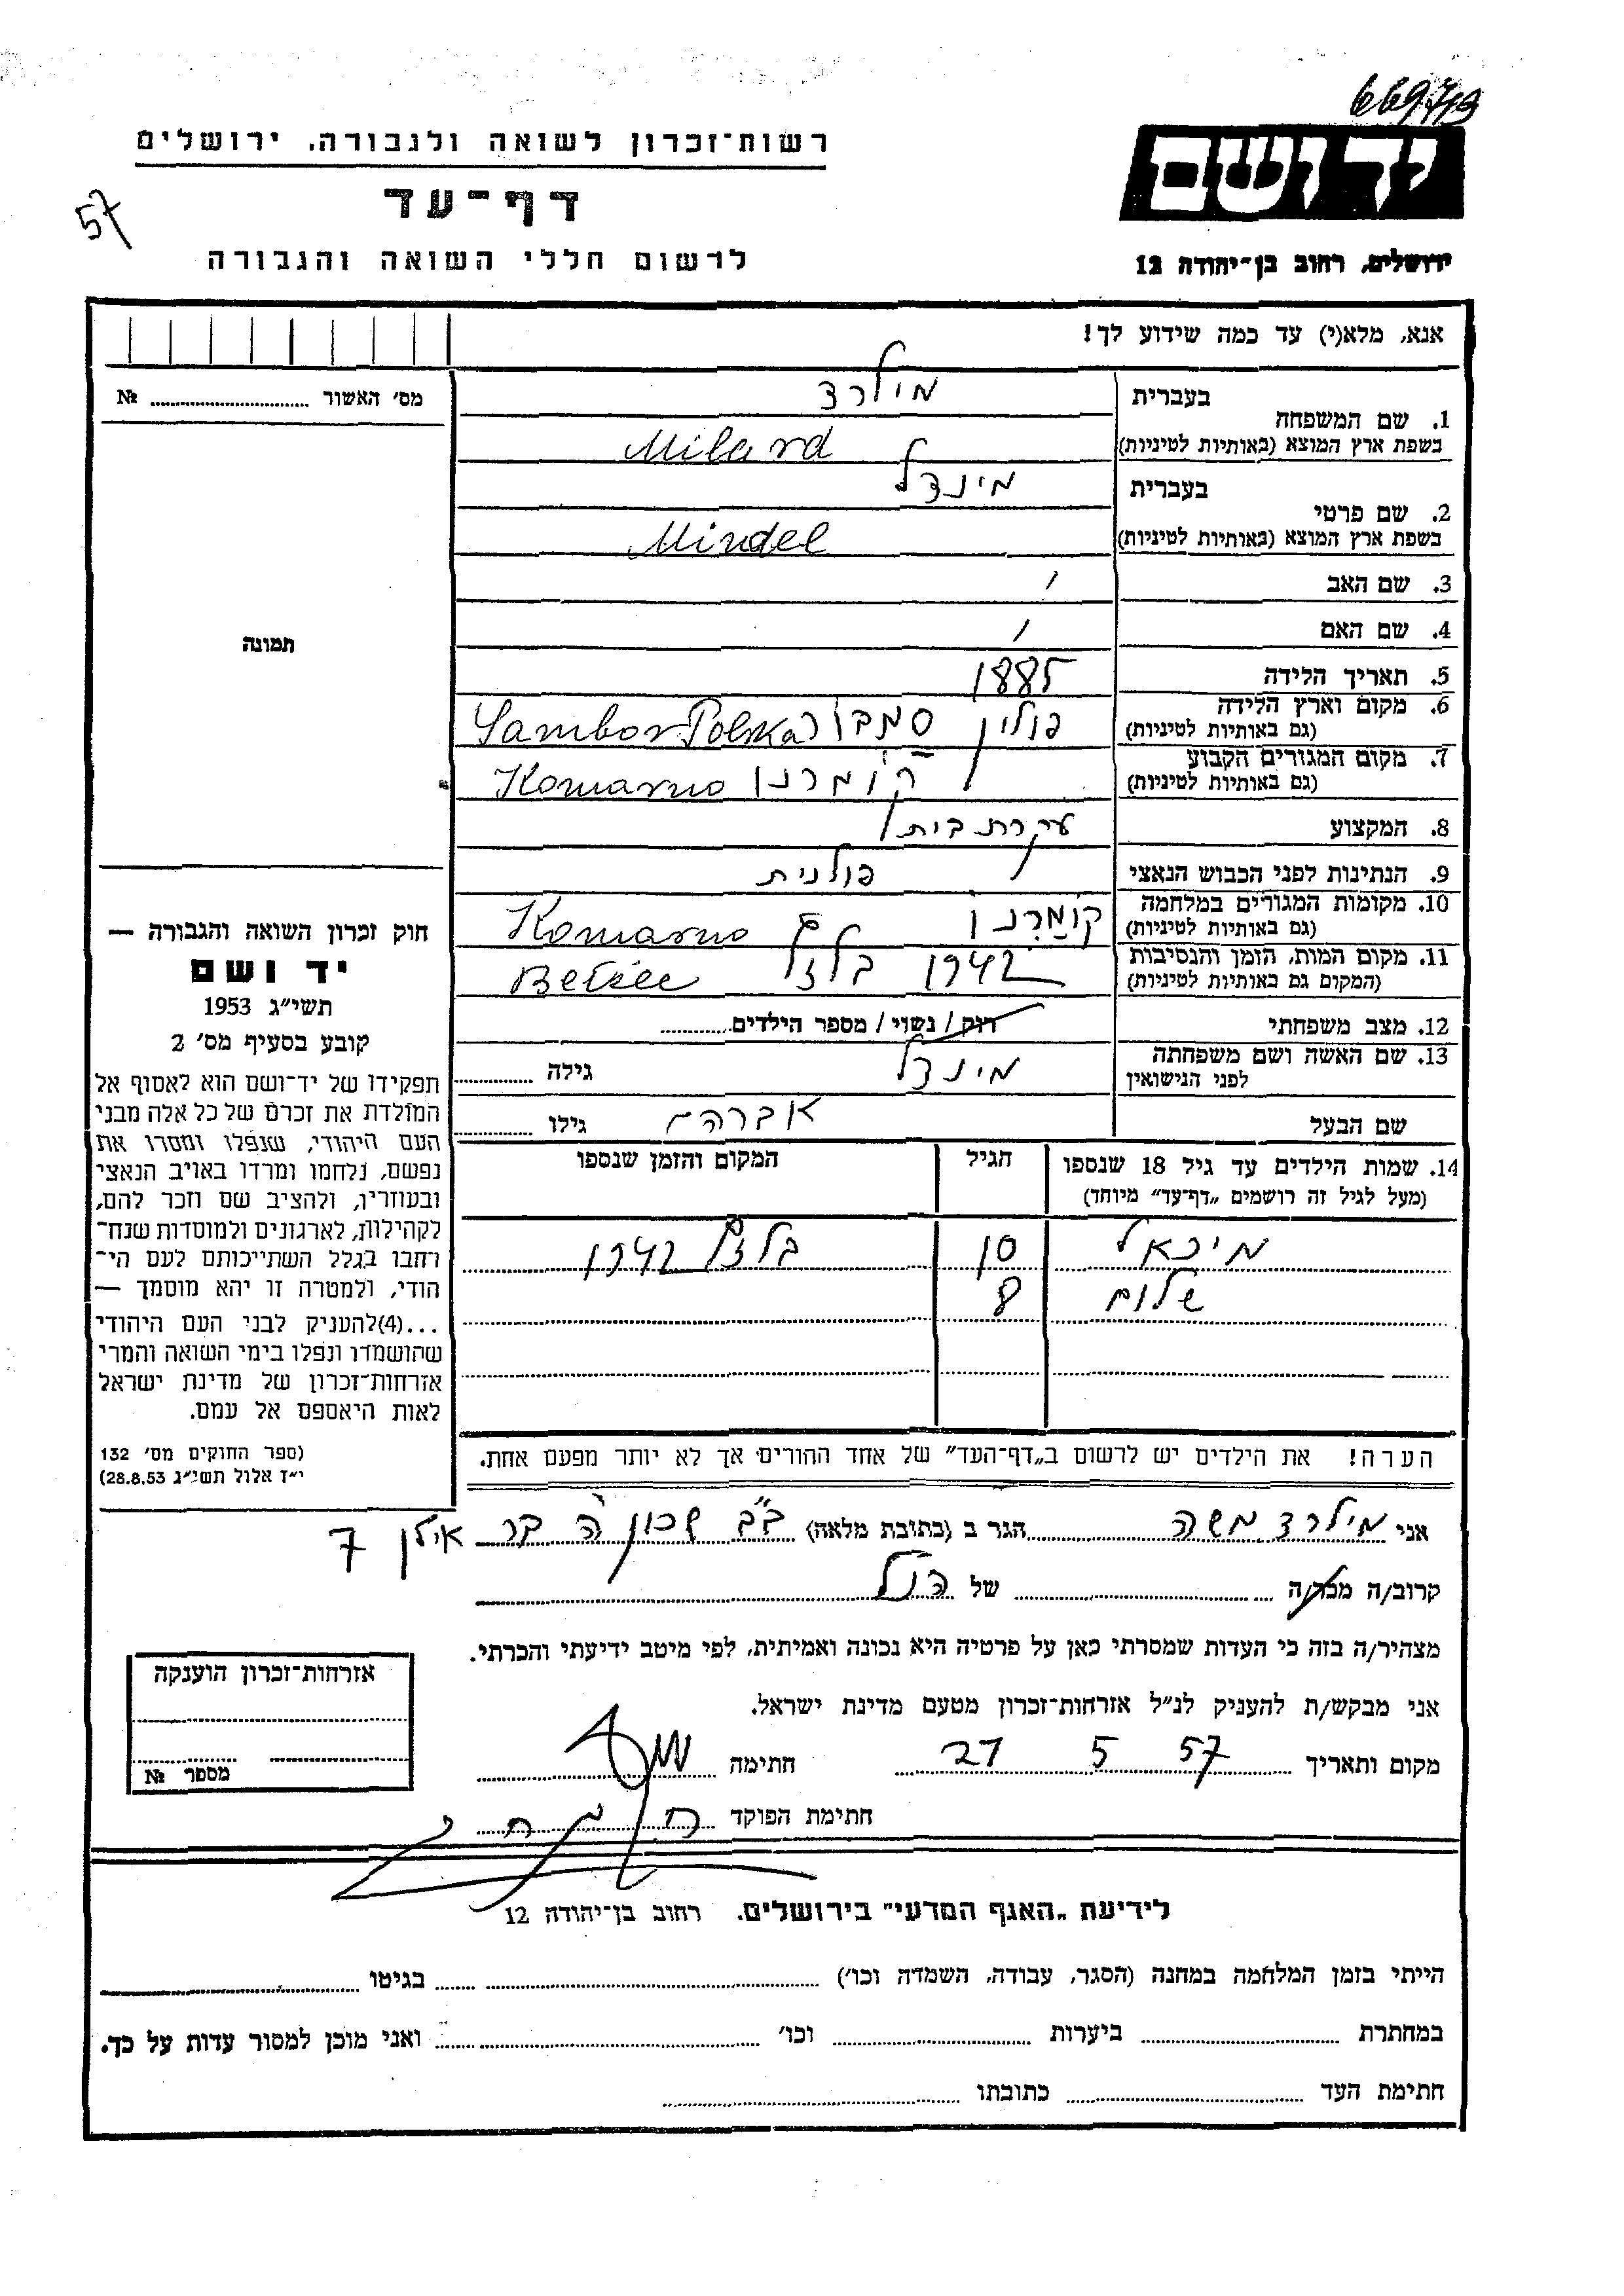 66979
יד ושם
רשות־זכרון לשואה ולגבורה, ירושלים
דף־עד
57
לרשום חללי השואה והגבורה
ירושלים, רחוב בן־יהודה 12
אנא, מלא(י) עד כמה שידוע לך!
מס׳ האשור № 
תמונה
בעברית מילרד
1. שם המשפחה
בשפת ארץ המוצא (באותיות לטיניות) Milard
בעברית מינדל
2. שם פרטי
בשפת ארץ המוצא (באותיות לטיניות) Mindel
3. שם האב /
4. שם האם /
5. תאריך הלידה 1885
6. מקום וארץ הלידה
(גם באותיות לטיניות) פולין סמבור Sambor Polska
7. מקום המגורים הקבוע
(גם באותיות לטיניות) קומרנו Komarno
8. המקצוע עקרת בית
9. הנתינות לפני הכבוש הנאצי פולנית
10. מקומות המגורים במלחמה
(גם באותיות לטיניות) קומרנו Komarno
11. מקום המות, הזמן והנסיבות
(המקום גם באותיות לטיניות) 1942 בלזץ Bełżec
12. מצב משפחתי רוק / נשוי / מספר הילדים
13. שם האשה ושם משפחתה
לפני הנישואין מינדל גילה
שם הבעל אברהם גילו
14. שמות הילדים עד גיל 18 שנספו הגיל המקום והזמן שנספו
(מעל לגיל זה רושמים „דף־עד״ מיוחד)
מיכאל 10 בלזץ 1942
שלום 8
הערה! את הילדים יש לרשום ב„דף־העד״ של אחד ההורים אך לא יותר מפעם אחת.
חוק זכרון השואה והגבורה —
יד ושם
תשי״ג 1953
קובע בסעיף מס׳ 2
תפקידו של יד־ושם הוא לאסוף אל
המולדת את זכרם של כל אלה מבני
העם היהודי, שנפלו ומסרו את
נפשם, נלחמו ומרדו באויב הנאצי
ובעוזריו, ולהציב שם וזכר להם,
לקהילות, לארגונים ולמוסדות שנח־
רחבו בגלל השתייכותם לעם הי־
הודי, ולמטרה זו יהא מוסמך —
...(4)להעניק לבני העם היהודי
שהושמדו ונפלו בימי השואה והמרי
אזרחות־זכרון של מדינת ישראל
לאות היאספם אל עמם.
(ספר החוקים מס׳ 132
י״ז אלול תשי״ג 28.8.53)
אני מילרד משה הגר ב (כתובת מלאה) ב״ב שכון ה׳ בר אילן 7
קרוב/ה מכר/ה של הנ״ל
מצהיר/ה בזה כי העדות שמסרתי כאן על פרטיה היא נכונה ואמיתית, לפי מיטב ידיעתי והכרתי.
אני מבקש/ת להעניק לנ״ל אזרחות־זכרון מטעם מדינת ישראל.
מקום ותאריך 57 5 27 חתימה
חתימת הפוקד
אזרחות־זכרון הוענקה
מספר №
לידיעת „האגף המדעי״ בירושלים. רחוב בן־יהודה 12
הייתי בזמן המלחמה במחנה (הסגר, עבודה, השמדה וכו׳) בגיטו
במחתרת ביערות וכו׳ ואני מוכן למסור עדות על כך.
חתימת העד כתובתו